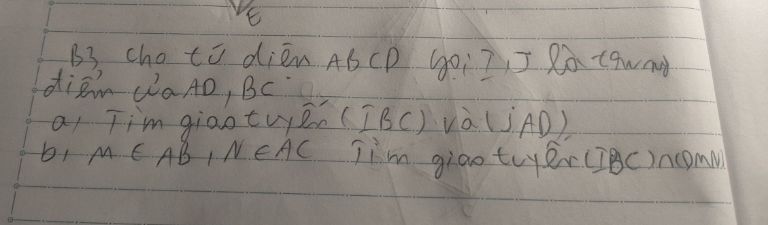 E
B3 cho tứ diện ABCD gọi I, J là trung
điểm của AD, BC
a, Tìm giao tuyến (IBC) và (JAD)
b, M ∈ AB, N ∈ AC Tìm giao tuyến (IBC)∩(DMN)